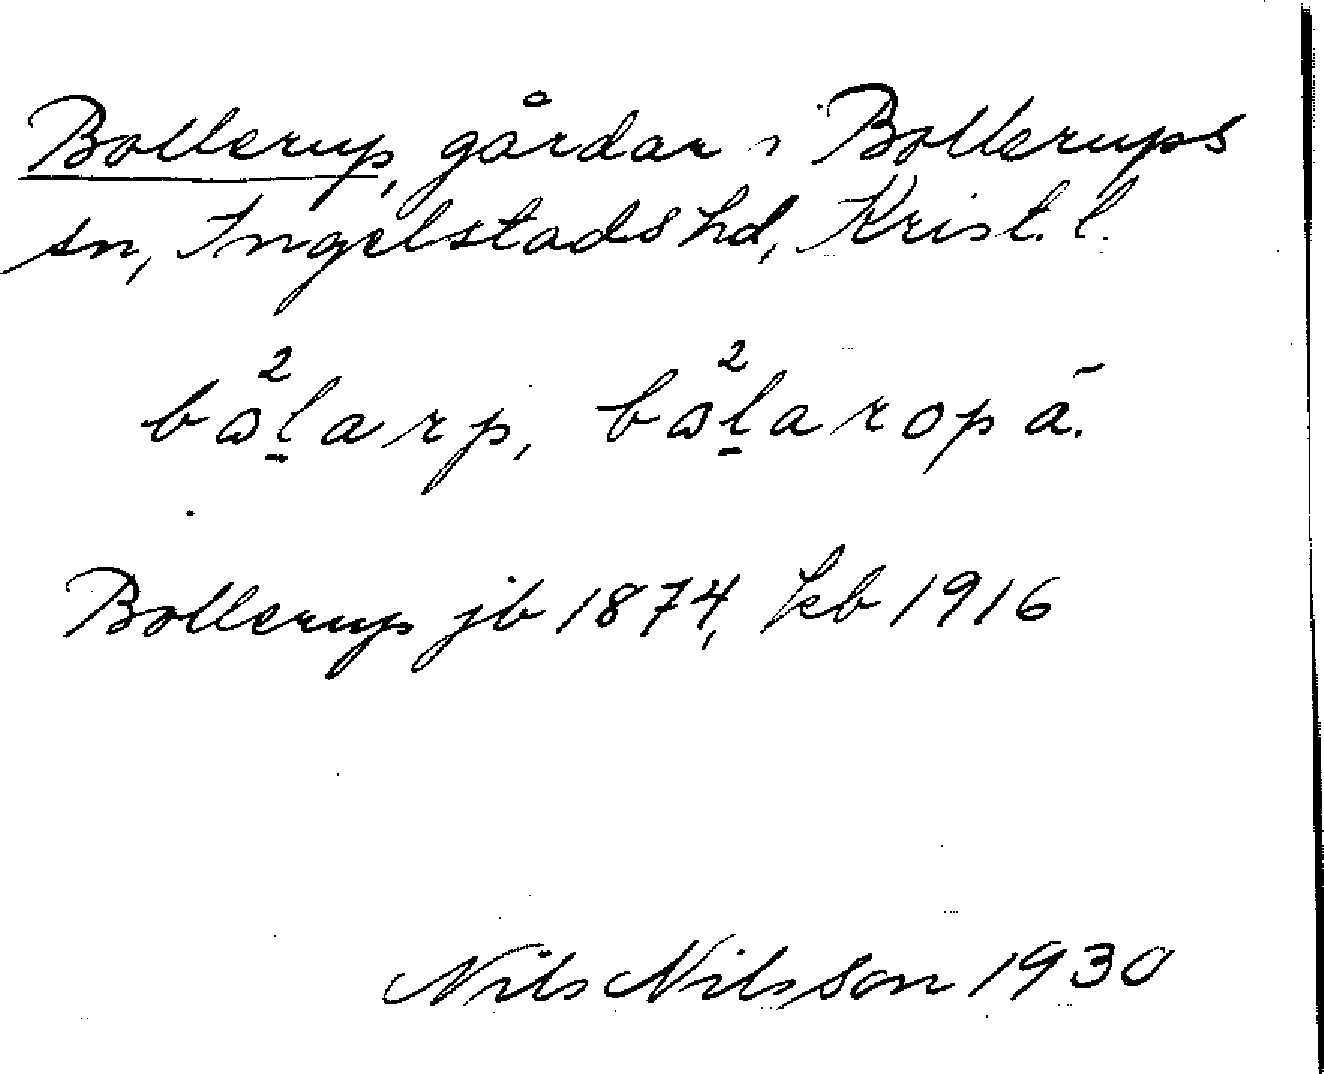 Bollerup, gårdar i Bollerups
sn, Ingelstads hd, Krist. l.
bω²l̠arp, bω²l̠aropā.
Bollerup jb 1874, kb 1916
Nils Nilsson 1930